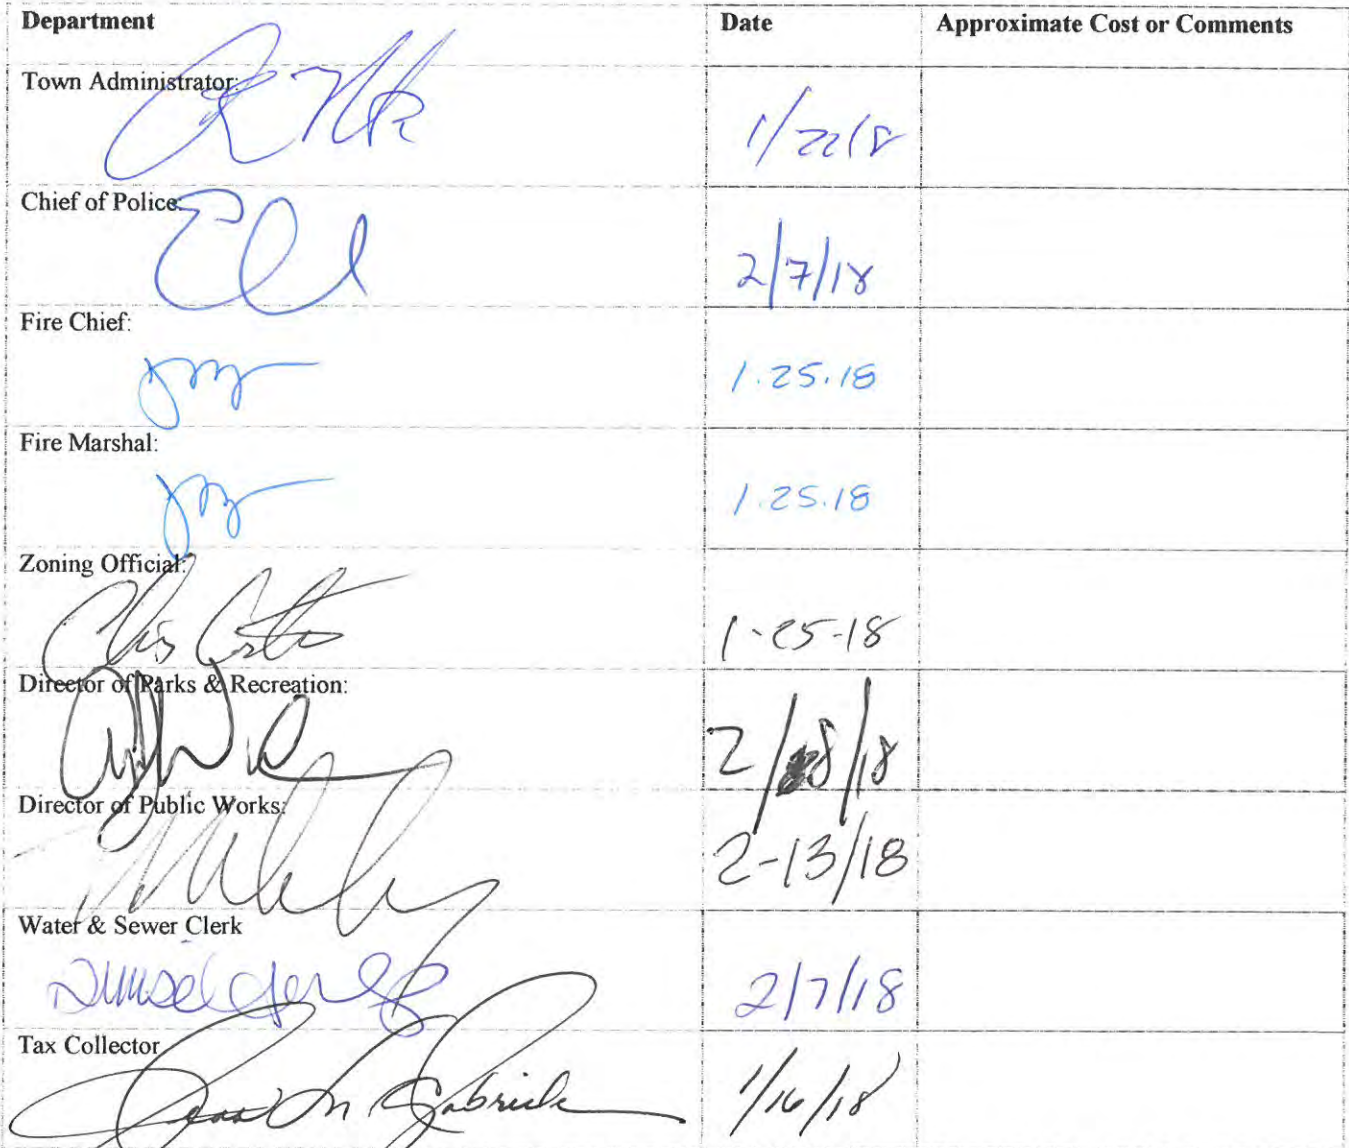 Department Date Approximate Cost or Comments
Town Administrator: 1/22/18
Chief of Police: 2/7/18
Fire Chief: 1.25.18
Fire Marshal: 1.25.18
Zoning Official: Chis 1-25-18
Director of Parks & Recreation: 2/8/18
Director of Public Works: 2-13/18
Water & Sewer Clerk 2/7/18
Tax Collector 1/16/18